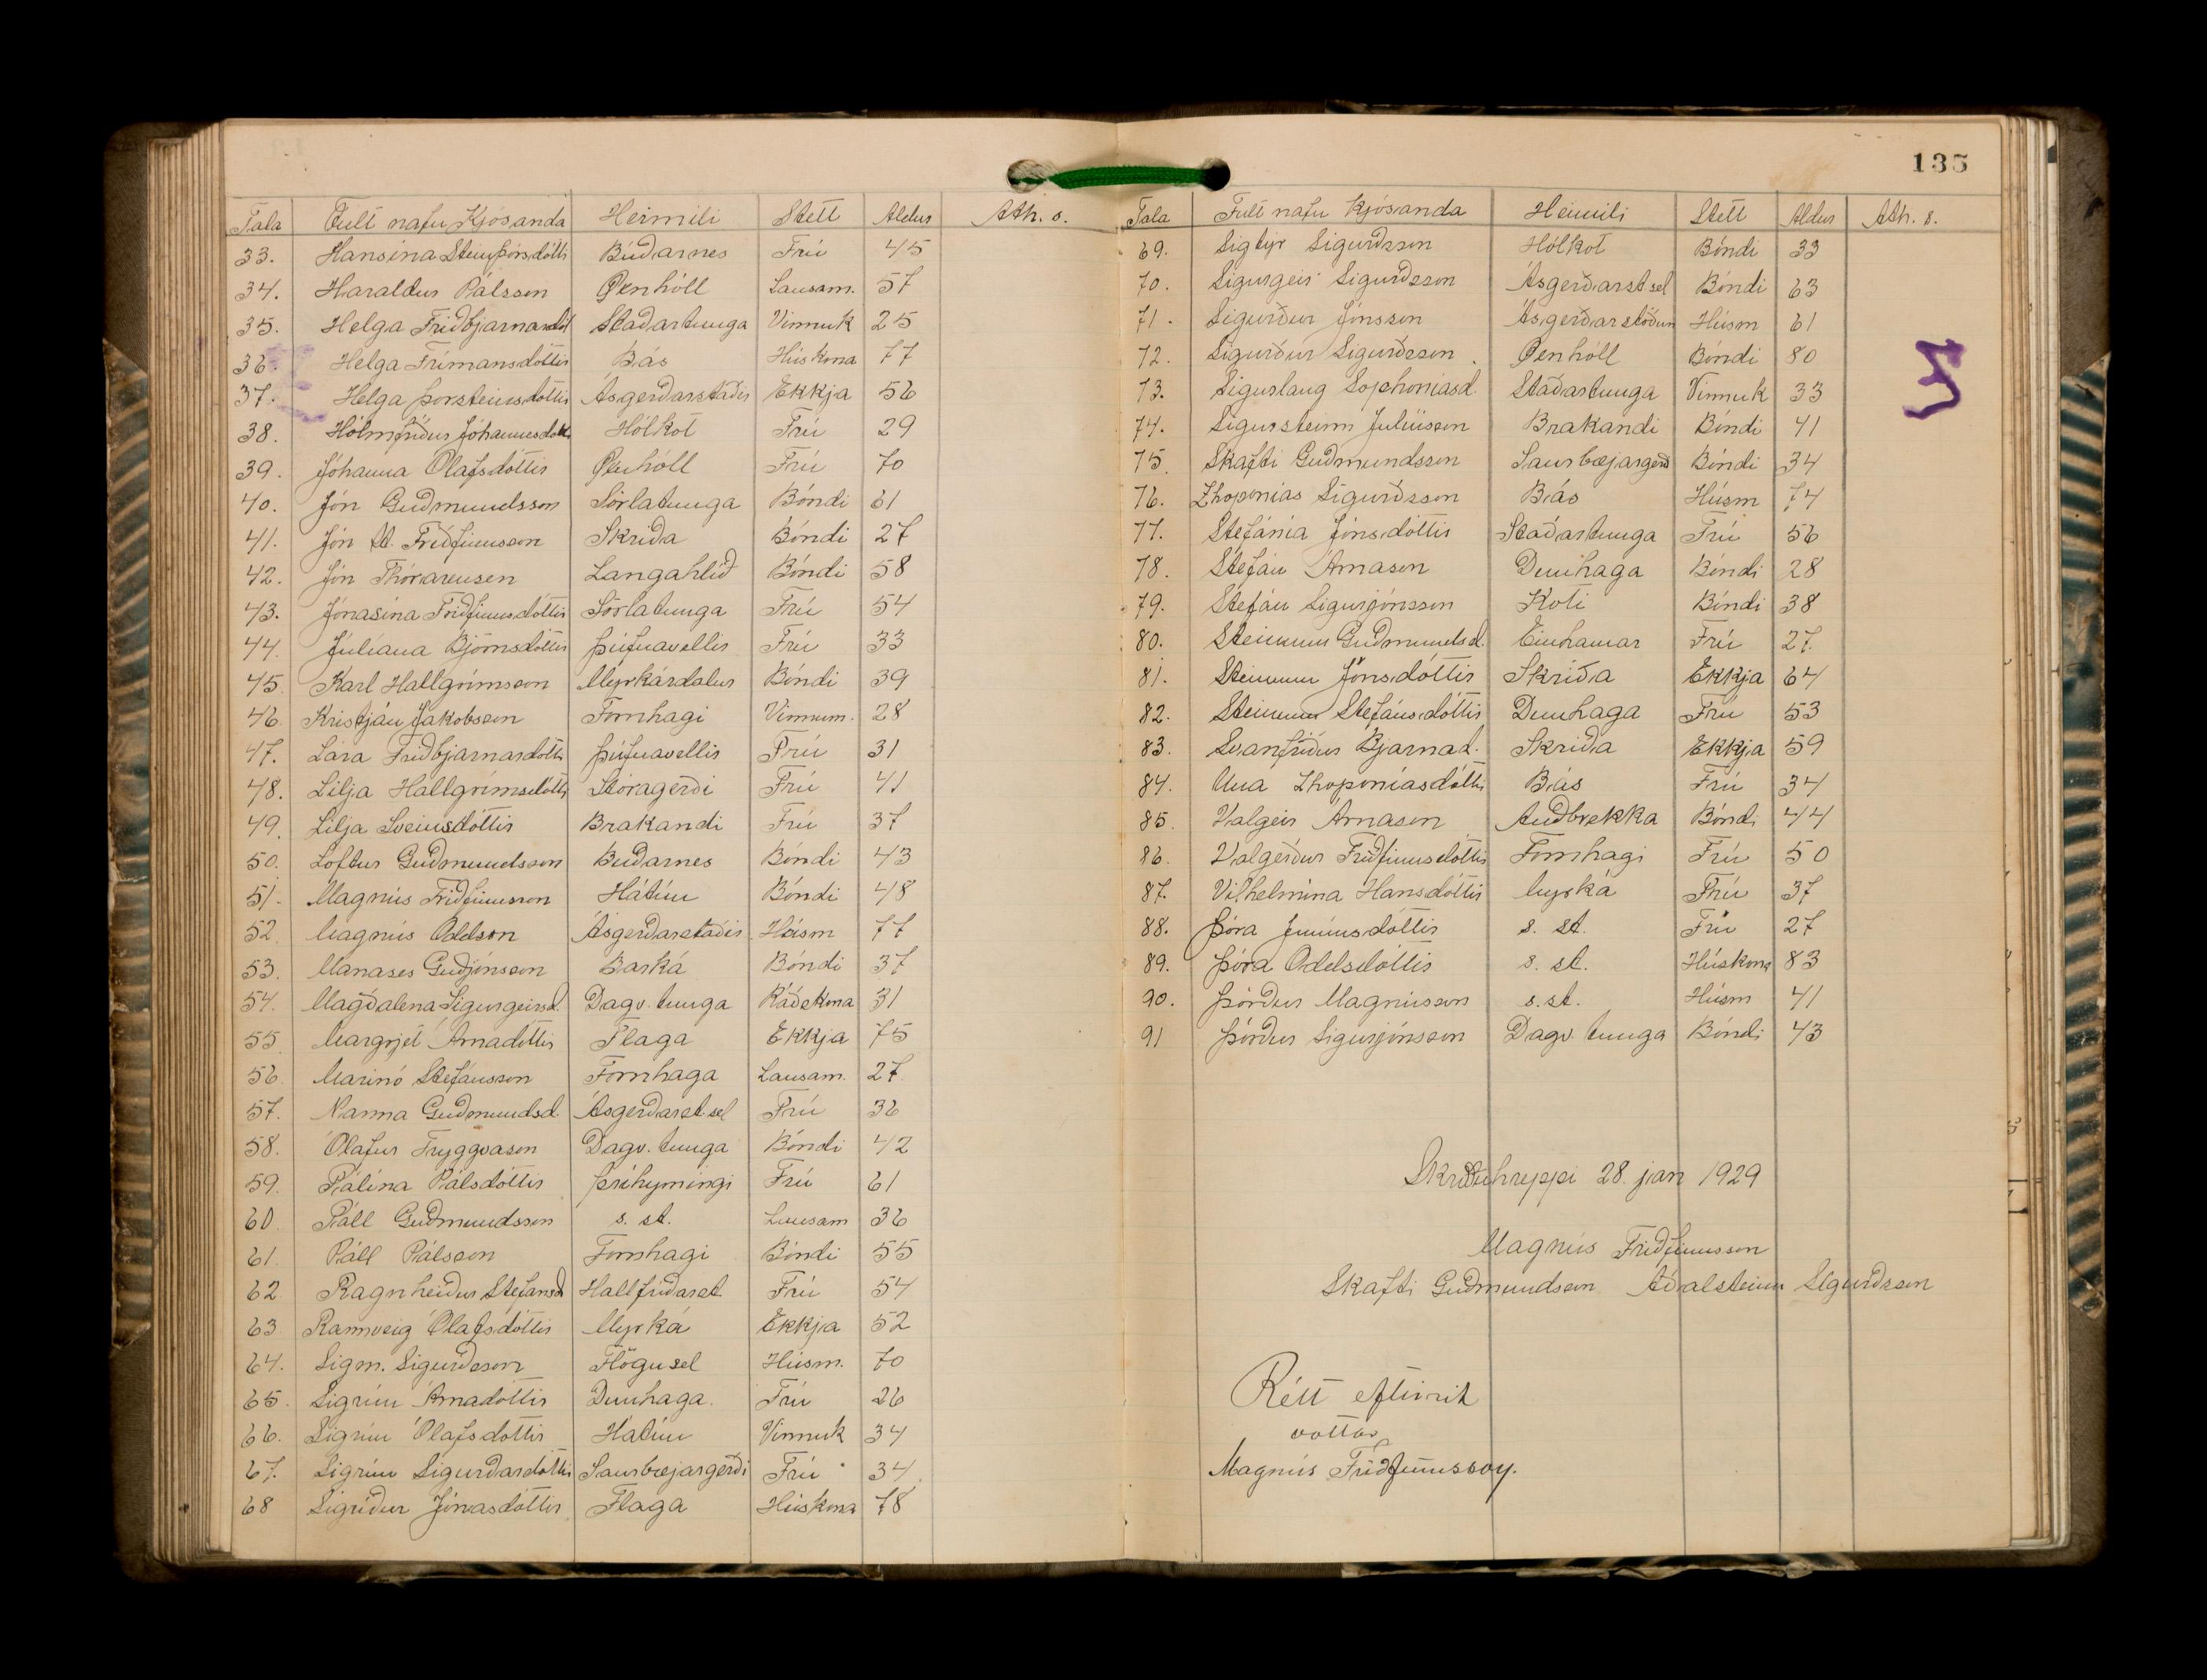 135
Tala Fult nafn Kjósanda Heimili Stétt Aldur Ath. s.
33. Hansína Steinþórsdóttir Búdarnes Frú 45
34. Haraldur Pálsson Öxnhóll Lausam. 57
35. Helga Fridbjarnardót Stadartunga Vinnuk 25
36. Helga Frímansdóttir Bás Húskona 77
37. Helga Þorsteinsdóttir Ásgerdarstadir Ekkja 56
38. Hólmfrídur Jóhannesdótt Hólkot Frú 29
39. Jóhanna Ólafsdóttir Öxnhóll Frú 70
40. Jón Gudmundsson Sörlatunga Bóndi 61
41. Jón St. Fridfinnsson Skrida Bóndi 27
42. Jón Thórarensen Langahlíd Bóndi 58
43. Jónasína Fridfinnsdóttir Sörlatunga Frú 54
44. Júlíana Björnsdóttir Þúfnavellir Frú 33
45. Karl Hallgrímsson Myrkárdalur Bóndi 39
46. Kristján Jakobsson Fornhagi Vinnum. 28
47. Lára Fridbjarnardóttir Þúfnavellir Frú 31
48. Lilja Hallgrímsdóttir Stóragerdi Frú 41
49. Lilja Sveinsdóttir Brakandi Frú 37
50. Loftur Gudmundsson Búdarnes Bóndi 43
51. Magnús Fridfinnsson Hátún Bóndi 48
52. Magnús Oddson Ásgerdarstadir Húsm 77
53. Manases Gudjónsson Barká Bóndi 37
54. Magdalena Sigurgeirsd. Dagv. tunga Rádskona 31
55. Margrjét Árnadóttir Flaga Ekkja 75
56. Marinó Stefánsson Fornhaga Lausam. 27
57. Nanna Gudmundsd. Ásgerdarst.sel Frú 36
58. Ólafur Tryggvason Dagv. tunga Bóndi 42
59. Pálína Pálsdóttir Þríhyrningi Frú 61
60. Páll Gudmundsson s. st. Lausam 36
61. Páll Pálsson Fornhagi Bóndi 55
62. Ragnheidur Stefansd Hallfrídarst. Frú 54
63. Rannveig Ólafsdóttir Myrká Ekkja 52
64. Sigm. Sigurdsson Flögusel Húsm. 70
65. Sigrún Árnadóttir Dunhaga. Frú 26
66. Sigrún Ólafsdóttir Hátún Vinnuk 34
67. Sigrún Sigurdardóttir Saurbæjargerdi Frú 34
68 Sigrídur Jónasdóttir Flaga Húskona 78
Tala Fult nafn Kjósanda Heimili Stétt Aldur Ath. s.
69. Sigtýr Sigurdsson Hólkot Bóndi 33
70. Sigurgeir Sigurdsson Ásgerdarst sel Bóndi 63
71. Sigurdur Jónsson Ásgerdarstödum Húsm 61
72. Sigurdur Sigurdsson Öxnhóll Bóndi 80
73. Sigurlaug Sophoniasd. Stadartunga Vinnuk 33
74. Sigursteinn Júlíusson Brakandi Bóndi 41
75. Skafti Gudmundsson Saurbæjargerd Bóndi 34
76. Zhoponias Sigurdsson Bás Húsm 74
77. Stefánía Jónsdóttir Stadartunga Frú 56
78. Stefán Árnason Dunhaga Bóndi 28
79. Stefán Sigurjónsson Koti Bóndi 38
80. Steinunn Gudmundsd. Einhamar Frú 27.
81. Steinunn Jónsdóttir Skrida Ekkja 64
82. Steinunn Stefánsdóttir Dunhaga Frú 53
83. Svanfrídur Bjarnad. Skrida Ekkja 59
84. Una Zhoponíasdóttir Bás Frú 34
85. Valgeir Árnason Audbrekka Bóndi 44
86. Valgerdur Fridfinnsdóttir Fornhagi Frú 50
87. Vilhelmína Hansdóttir Myrká Frú 37
88. Þóra Júníusdóttir s. st. Frú 27
89. Þóra Oddsdóttir s. st. Húskona 83
90. Þórdur Magnússon s. st. Húsm 41
91 Þórdur Sigurjónsson Dagv. tunga Bóndi 43
Skriduhreppi 28. jan 1929
Magnús Fridfinnsson
Skafti Gudmundsson Adalsteinn Sigurdsson
Rétt eftirrit
vottar
Magnús Fridfinnsson.